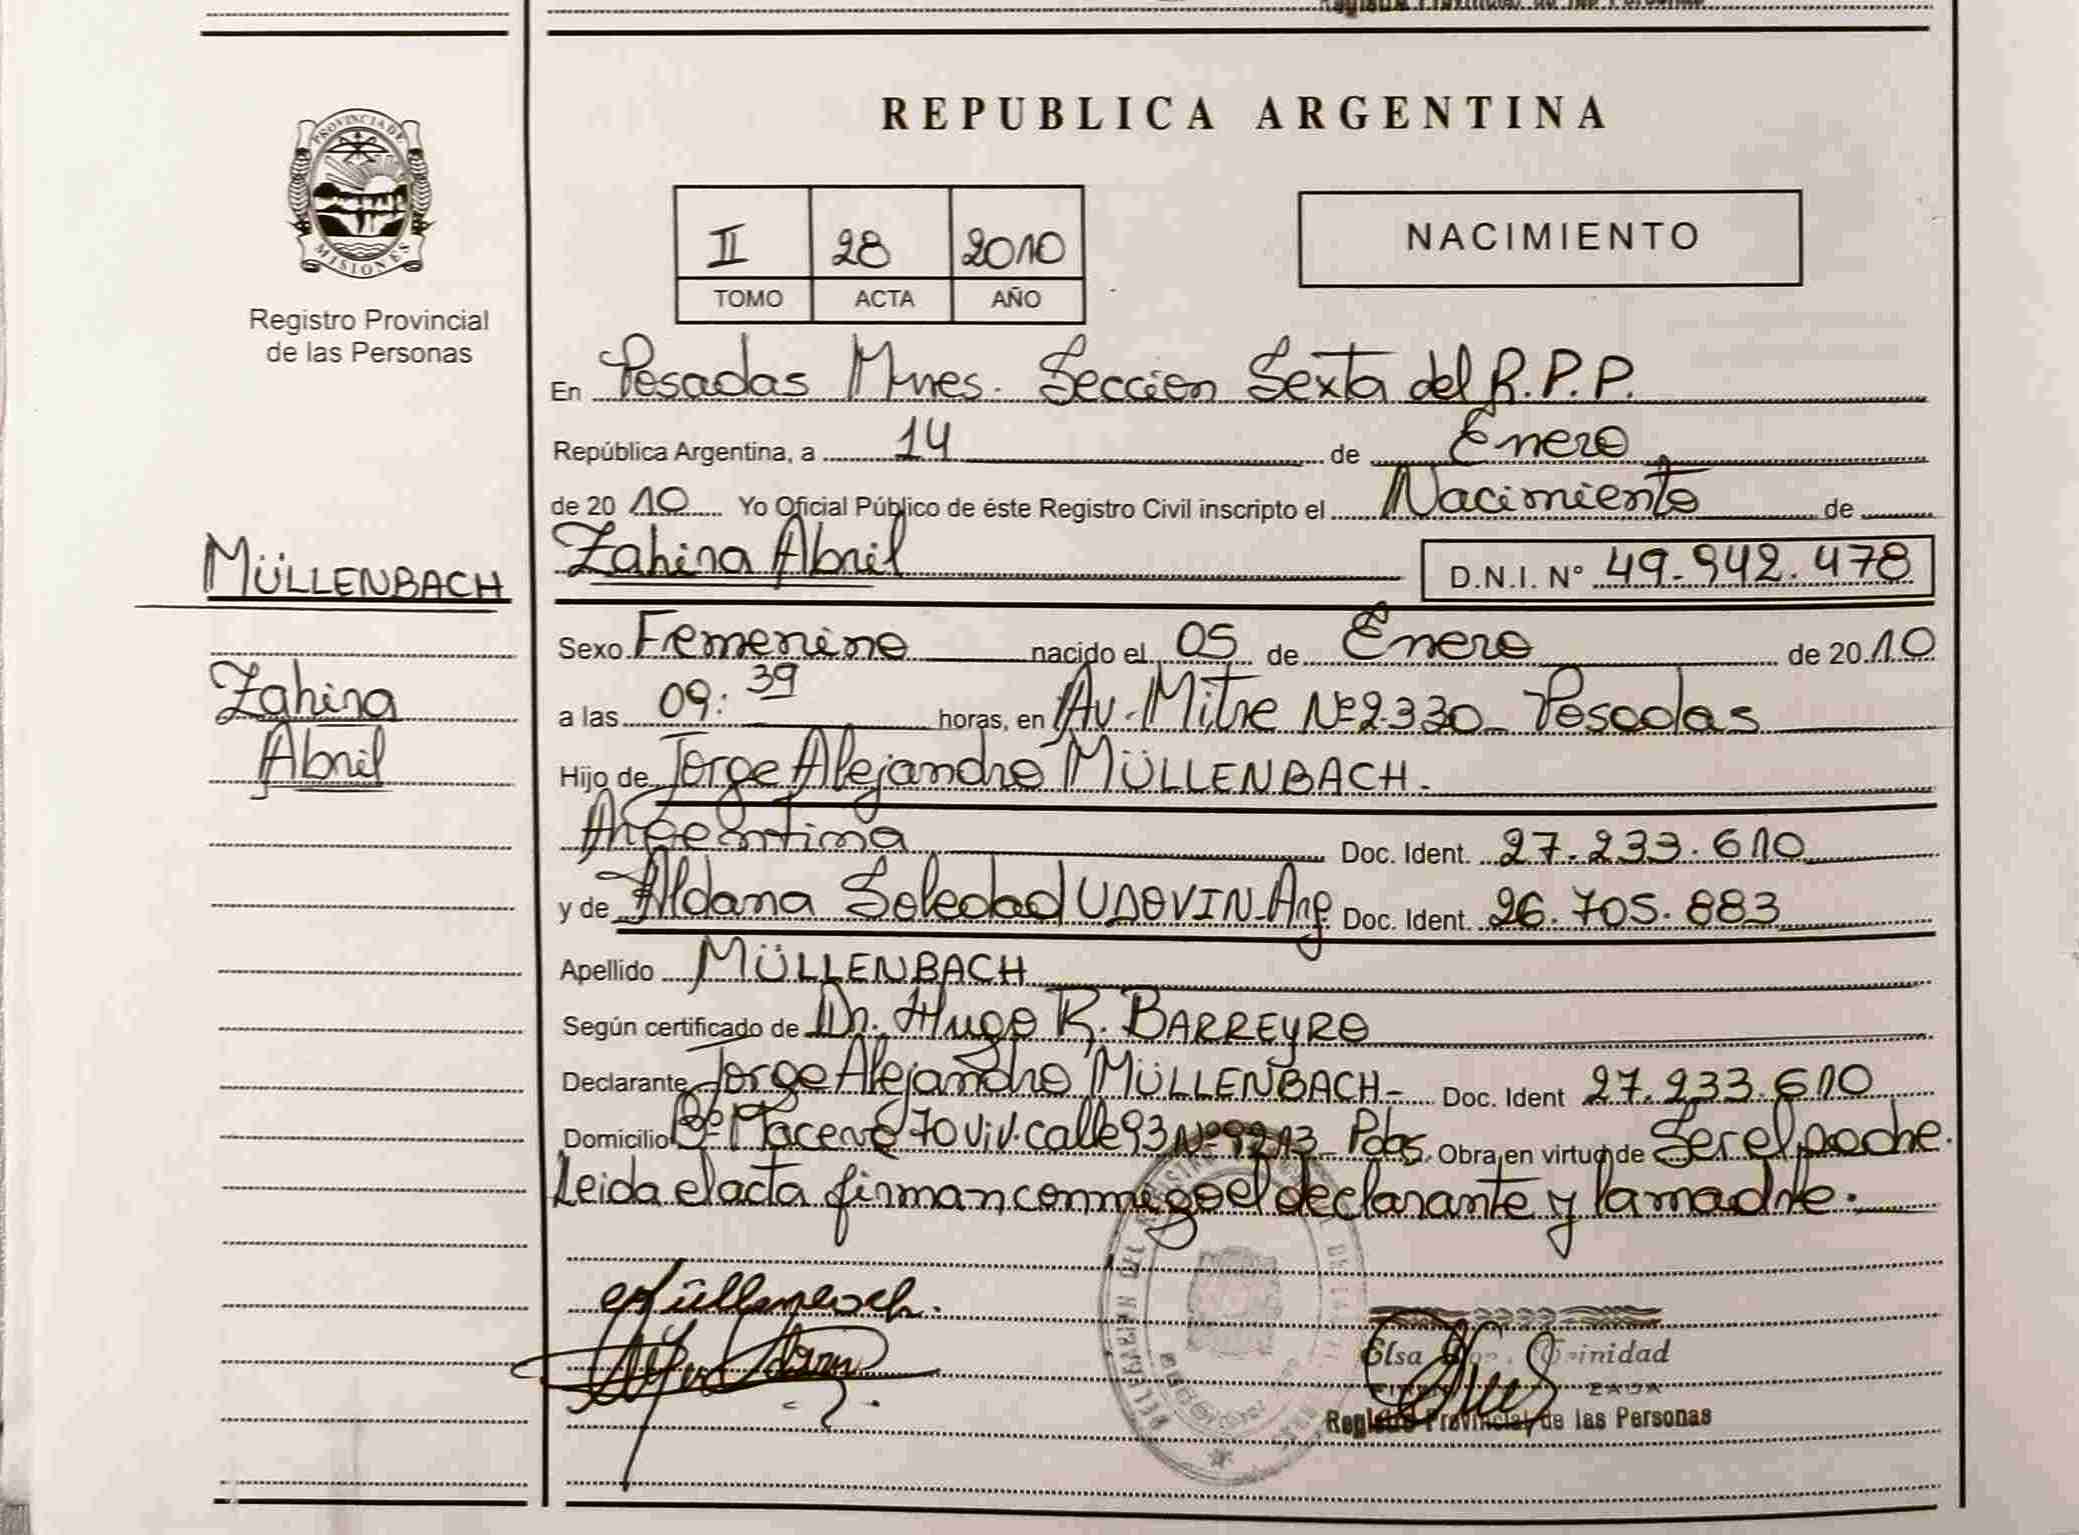 Registro Provincial de las Personas
REPUBLICA ARGENTINA
PROVINCIA DE
MISIONES
Registro Provincial
de las Personas
II 28 2010
TOMO ACTA AÑO
NACIMIENTO
En Posadas Mnes. Seccion Sexta del R.P.P.
República Argentina, a 14 de Enero
de 2010 Yo Oficial Público de éste Registro Civil inscripto el Nacimiento de
MÜLLENBACH
Zahira Abril D.N.I. Nº 49.942.478
Sexo Femenino nacido el 05 de Enero de 2010
Zahira
Abril
a las 09:39 horas, en Av. Mitre Nº 2.330 Posadas
Hijo de Jorge Alejandro MÜLLENBACH.
Argentina Doc. Ident. 27.233.610
y de Aldana Soledad UDOVIN-Arg Doc. Ident. 26.705.883
Apellido MÜLLENBACH
Según certificado de Dr. Hugo R. BARREYRO
Declarante Jorge Alejandro MÜLLENBACH- Doc. Ident 27.233.610
Domicilio Bº 70 viv. calle 93 Nº Pdas. Obra en virtud de Ser el padre.
Leida el acta firman conmigo el declarante y la madre.
Elsa Trinidad
Registro Provincial de las Personas